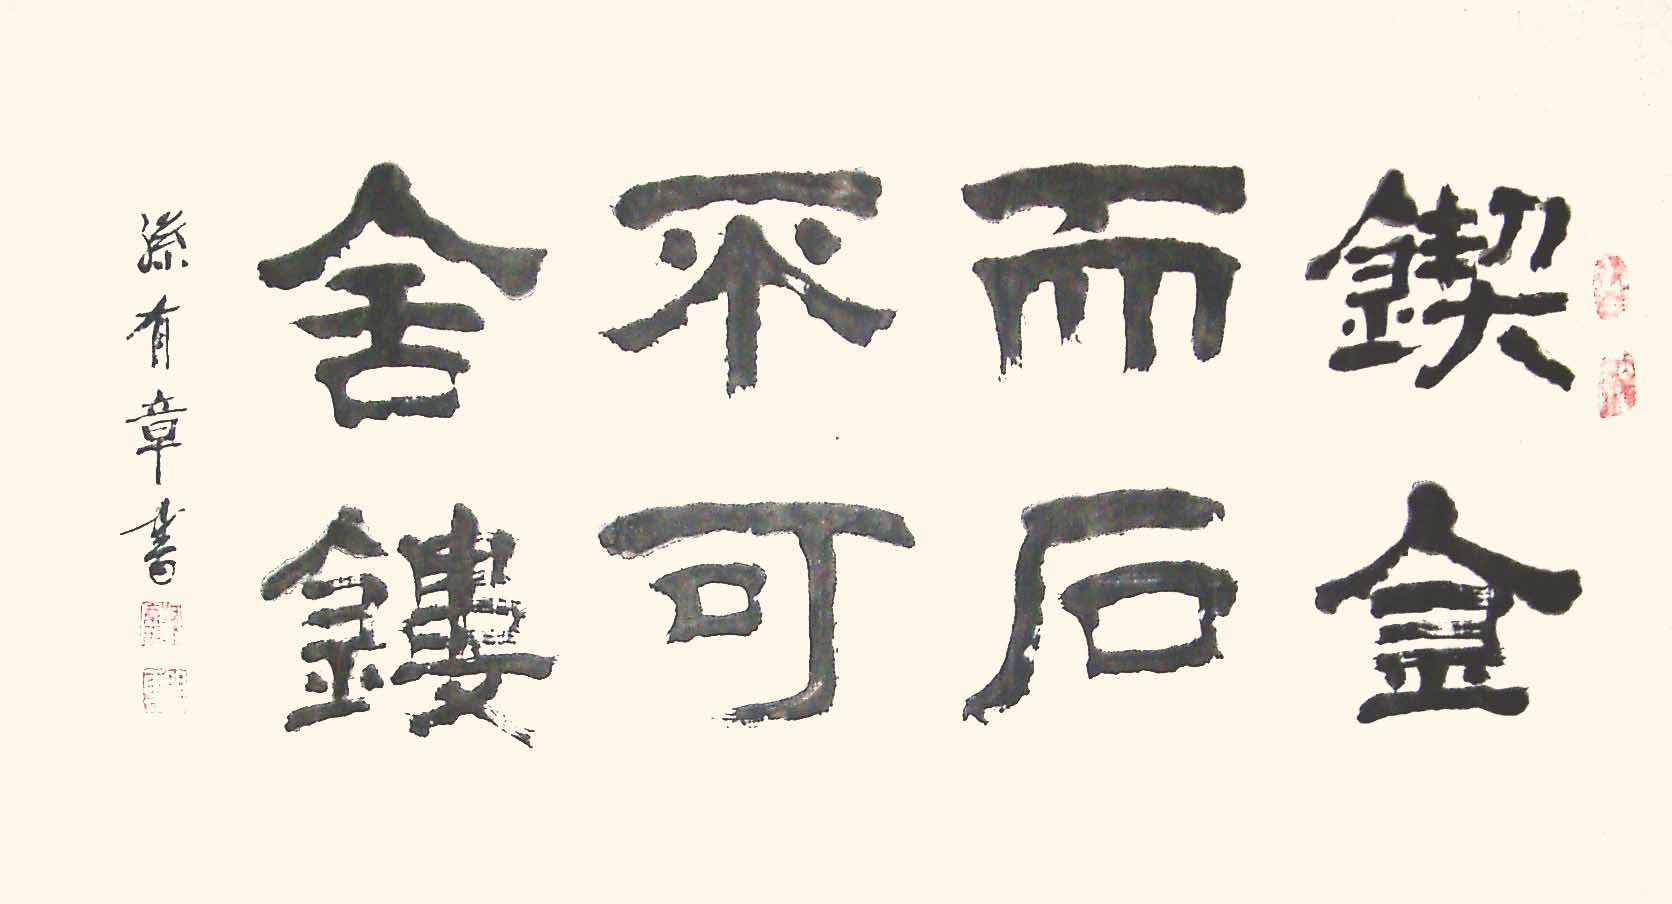 鍥而不舍
金石可鏤
孫有章書